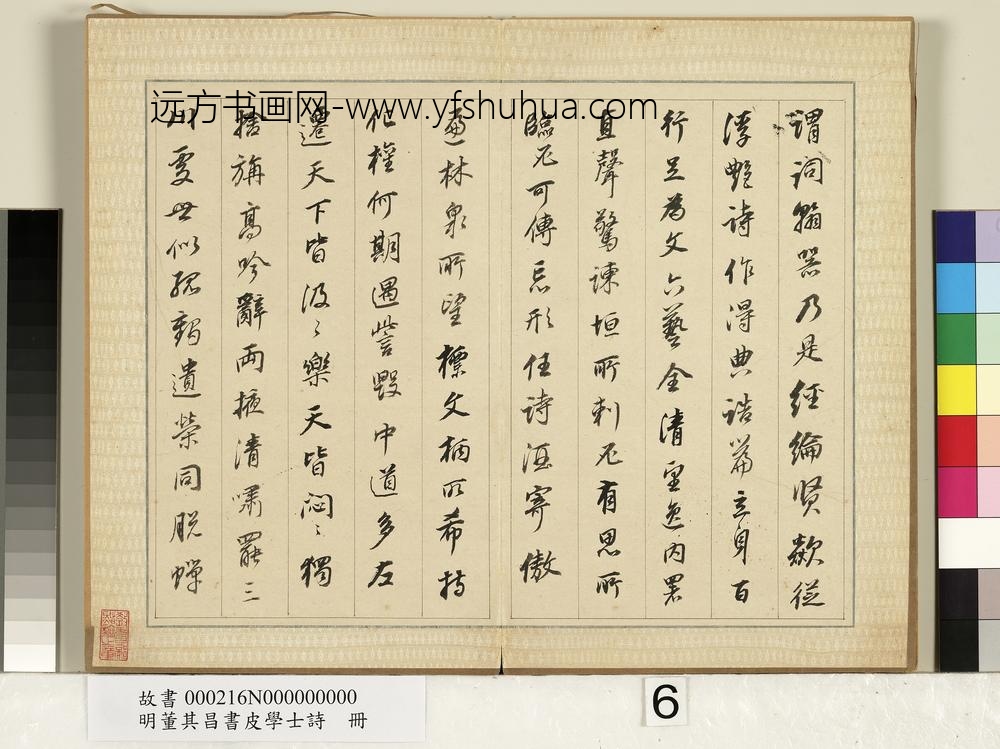 远方书画网-www.yfshuhua.com
謂詞翰器乃是經綸賢欻從
浮艷詩作得典誥篇立身百
行足為文六藝全清望逸內署
直聲驚諫垣所刺必有思所
臨必可傳忘形任詩酒寄傲
遍林泉所望標文柄所希持
化權何期遇訾毀中道多左
遷天下皆汲〻樂天皆悶〻獨
捨旃高吟辭兩掖清嘯罷三
川處世似孤鶴遺榮同脫蟬
故書 000216N000000000
明董其昌書皮學士詩 冊
6